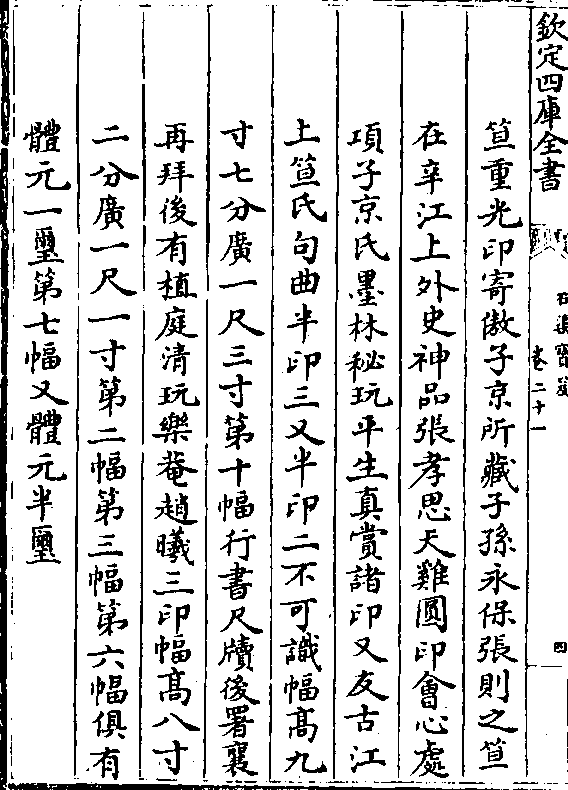 欽定四庫全書
石渠寶笈
卷二十一
四
笪重光印寄傲子京所藏子孫永保張則之笪
在辛江上外史神品張孝思天雞圓印會心處
項子京氏墨林秘玩平生真賞諸印又友古江
上笪氏句曲半印三又半印二不可識幅高九
寸七分廣一尺三寸第十幅行書尺牘後署襄
再拜後有植庭清玩樂菴趙曦三印幅高八寸
二分廣一尺一寸第二幅第三幅第六幅俱有
體元一璽第七幅又體元半璽